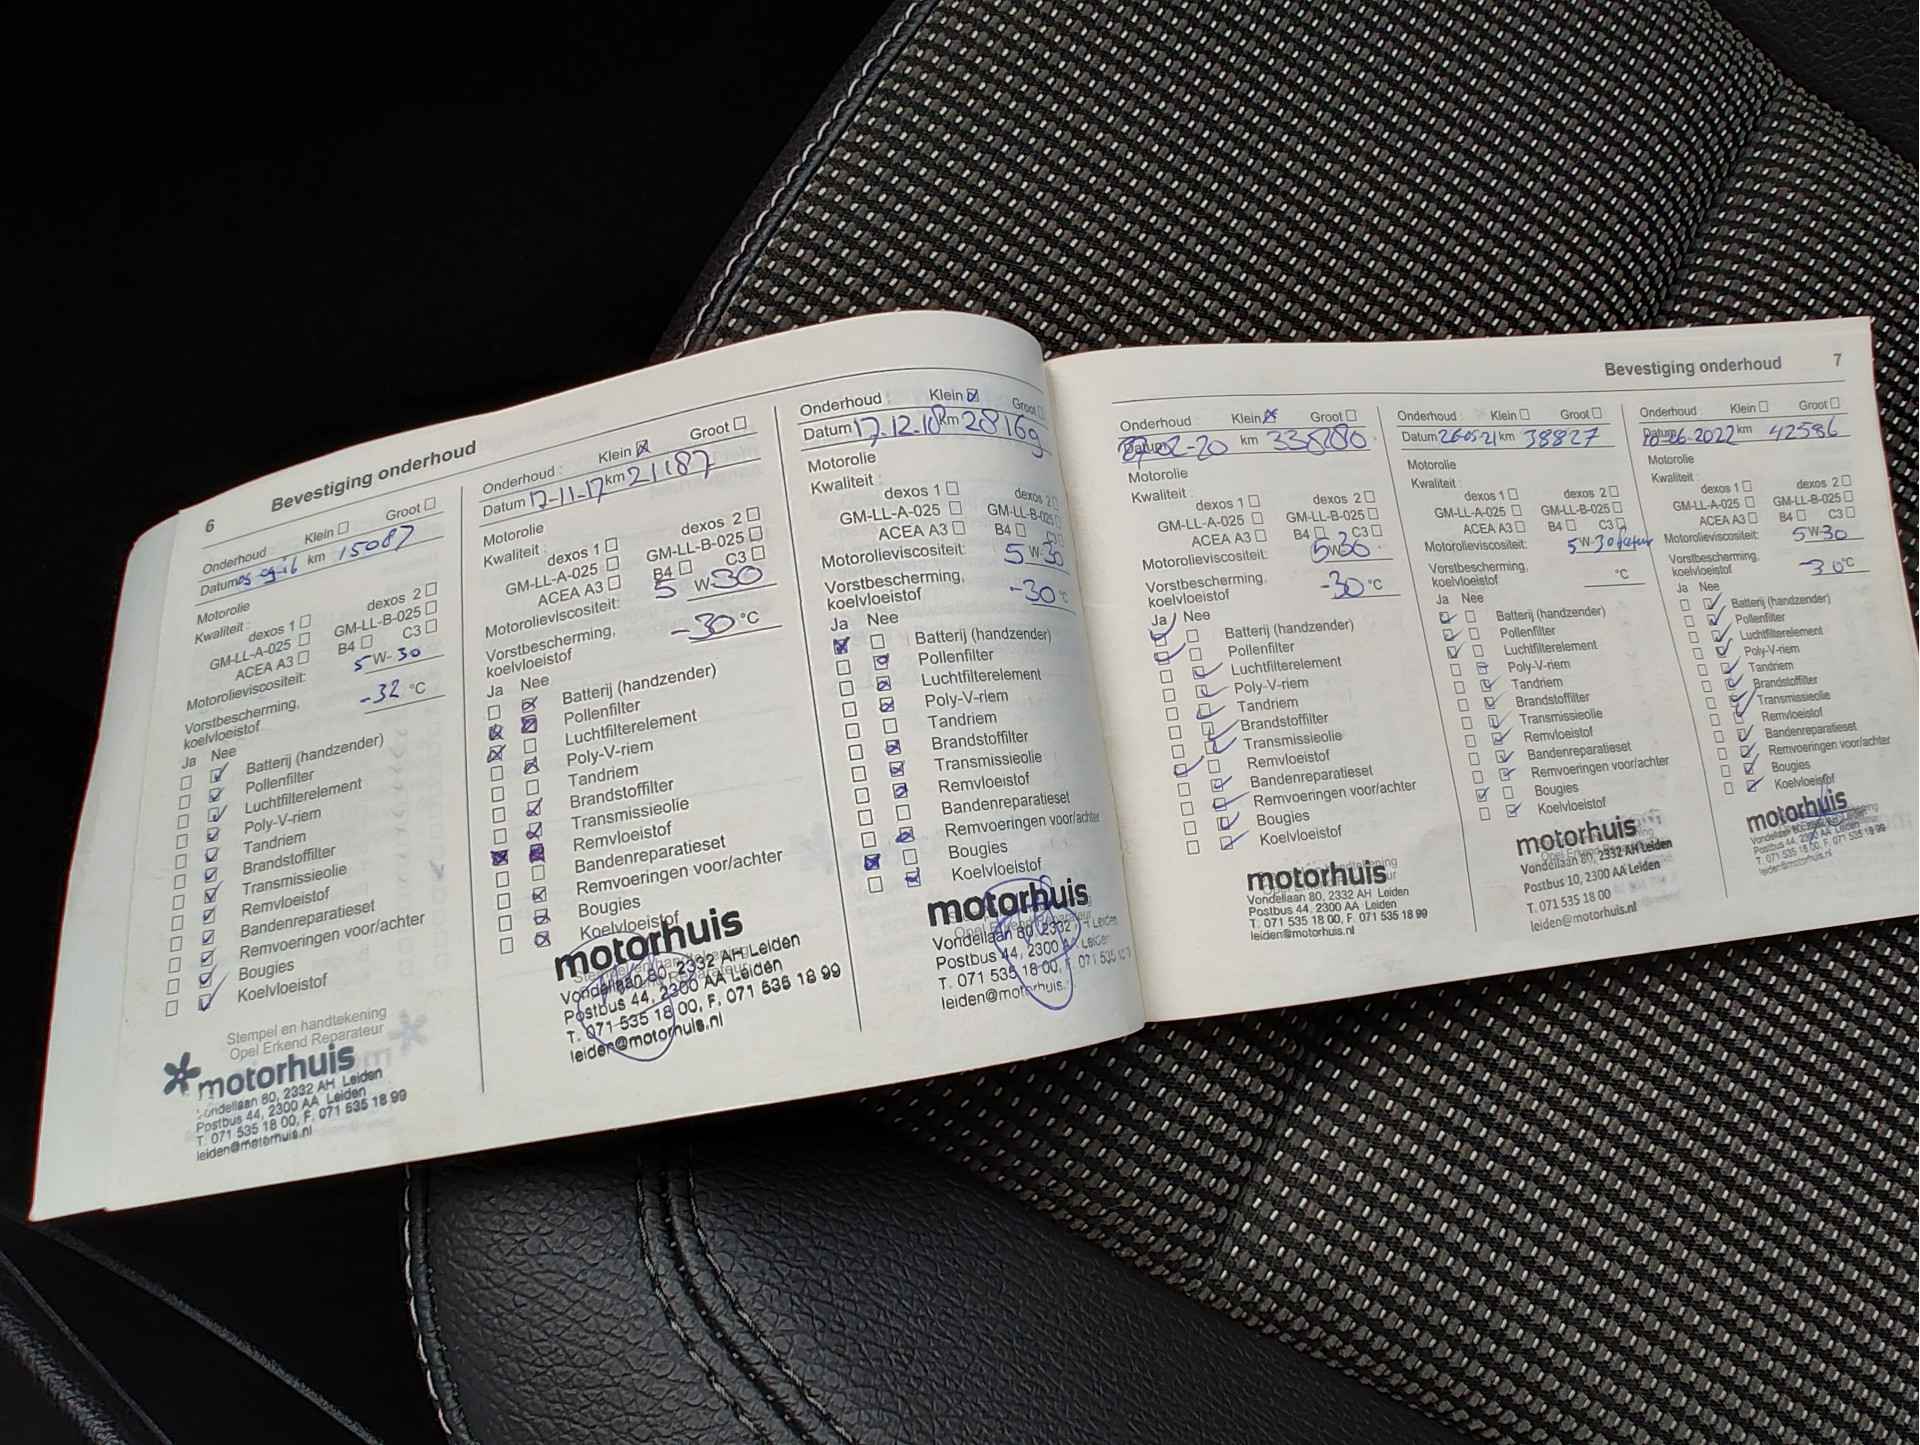 6
Bevestiging onderhoud
Onderhoud : Klein Groot
Datum 05-09-16 km 15087
Motorolie
Kwaliteit : dexos 1 dexos 2
GM-LL-A-025 GM-LL-B-025
ACEA A3 B4 C3
Motorolieviscositeit: 5 W-30
Vorstbescherming,
koelvloeistof -32 °C
Ja Nee
Batterij (handzender)
Pollenfilter
Luchtfilterelement
Poly-V-riem
Tandriem
Brandstoffilter
Transmissieolie
Remvloeistof
Bandenreparatieset
Remvoeringen voor/achter
Bougies
Koelvloeistof
Stempel en handtekening
Opel Erkend Reparateur
motorhuis
Vondellaan 80, 2332 AH Leiden
Postbus 44, 2300 AA Leiden
T. 071 535 18 00, F. 071 535 18 99
leiden@motorhuis.nl
Onderhoud : Klein Groot
Datum 17-11-17 km 21187
Motorolie
Kwaliteit : dexos 1 dexos 2
GM-LL-A-025 GM-LL-B-025
ACEA A3 B4 C3
Motorolieviscositeit: 5 W-30
Vorstbescherming,
koelvloeistof -30 °C
Ja Nee
Batterij (handzender)
Pollenfilter
Luchtfilterelement
Poly-V-riem
Tandriem
Brandstoffilter
Transmissieolie
Remvloeistof
Bandenreparatieset
Remvoeringen voor/achter
Bougies
Koelvloeistof
motorhuis
Stempel en handtekening
Vondellaan 80, 2332 AH Leiden
Postbus 44, 2300 AA Leiden
T. 071 535 18 00, F. 071 535 18 99
leiden@motorhuis.nl
Onderhoud : Klein Groot
Datum 17-12-18 km 28169
Motorolie
Kwaliteit : dexos 1 dexos 2
GM-LL-A-025 GM-LL-B-025
ACEA A3 B4 C3
Motorolieviscositeit: 5 W-30
Vorstbescherming,
koelvloeistof -30 °C
Ja Nee
Batterij (handzender)
Pollenfilter
Luchtfilterelement
Poly-V-riem
Tandriem
Brandstoffilter
Transmissieolie
Remvloeistof
Bandenreparatieset
Remvoeringen voor/achter
Bougies
Koelvloeistof
motorhuis
Vondellaan 80, 2332 AH Leiden
Postbus 44, 2300 AA Leiden
T. 071 535 18 00, F. 071 535
leiden@motorhuis.
Bevestiging onderhoud
7
Onderhoud : Klein Groot
Datum 02-20 km
Motorolie
Kwaliteit : dexos 1 dexos 2
GM-LL-A-025 GM-LL-B-025
ACEA A3 B4 C3
Motorolieviscositeit: 5W30
Vorstbescherming,
koelvloeistof -30 °C
Ja Nee
Batterij (handzender)
Pollenfilter
Luchtfilterelement
Poly-V-riem
Tandriem
Brandstoffilter
Transmissieolie
Remvloeistof
Bandenreparatieset
Remvoeringen voor/achter
Bougies
Koelvloeistof
motorhuis
Vondellaan 80, 2332 AH Leiden
Postbus 44, 2300 AA Leiden
T. 071 535 18 00, F. 071 535 18 99
leiden@motorhuis.nl
Onderhoud : Klein Groot
Datum 26-05-21 km 38827
Motorolie
Kwaliteit : dexos 1 dexos 2
GM-LL-A-025 GM-LL-B-025
ACEA A3 B4 C3
Motorolieviscositeit: 5 W-30
Vorstbescherming,
koelvloeistof °C
Ja Nee
Batterij (handzender)
Pollenfilter
Luchtfilterelement
Poly-V-riem
Tandriem
Brandstoffilter
Transmissieolie
Remvloeistof
Bandenreparatieset
Remvoeringen voor/achter
Bougies
Koelvloeistof
motorhuis
Vondellaan 80, 2332 AH Leiden
Postbus 10, 2300 AA Leiden
T. 071 535 18 00
leiden@motorhuis.nl
Onderhoud : Klein Groot
Datum 10-06-2022 km 42586
Motorolie
Kwaliteit : dexos 1 dexos 2
GM-LL-A-025 GM-LL-B-025
ACEA A3 B4 C3
Motorolieviscositeit: 5 W-30
Vorstbescherming,
koelvloeistof -30 °C
Ja Nee
Batterij (handzender)
Pollenfilter
Luchtfilterelement
Poly-V-riem
Tandriem
Brandstoffilter
Transmissieolie
Remvloeistof
Bandenreparatieset
Remvoeringen voor/achter
Bougies
Koelvloeistof
motorhuis
Vondellaan 80, 2332 AH Leiden
Postbus 44, 2300 AA Leiden
T. 071 535 18 00, F. 071 535 18 99
leiden@motorhuis.nl